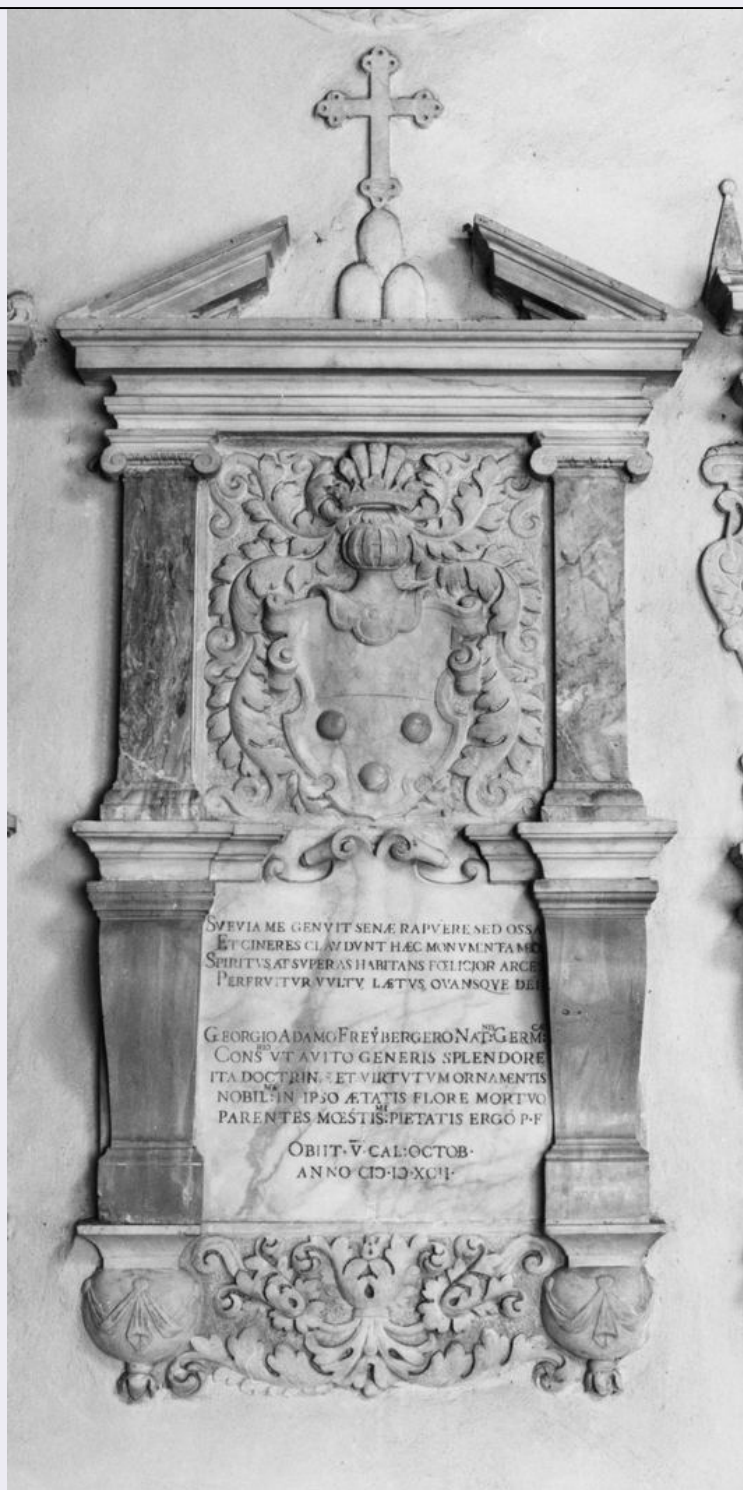 SVEVIA ME GENVIT SENÆ RAPVERE SED OSSA
ET CINERES CLAVDVNT HÆC MONVMENTA
SPIRITVS AT SVPERAS HABITANS FŒLICIOR ARCES
PERFRVITVR VVLTV LÆTVS OVANSQVE DEI
GEORGIO ADAMO FREŸBERGERO NAT:NIS GERM:CÆ
CONS:RIO VT AVITO GENERIS SPLENDORE
ITA DOCTRINÆ ET VIRTVTVM ORNAMENTIS
NOBIL:MO IN IPSO ÆTATIS FLORE MORTVO
PARENTES MŒSTIS:MI PIETATIS ERGÓ P·F
OBIIT·V·CAL:OCTOB·
ANNO CIↃ·IↃ·XCII·